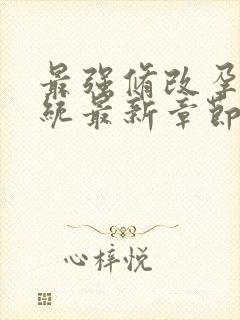 最强修改孕
统最新章节
心梓悦